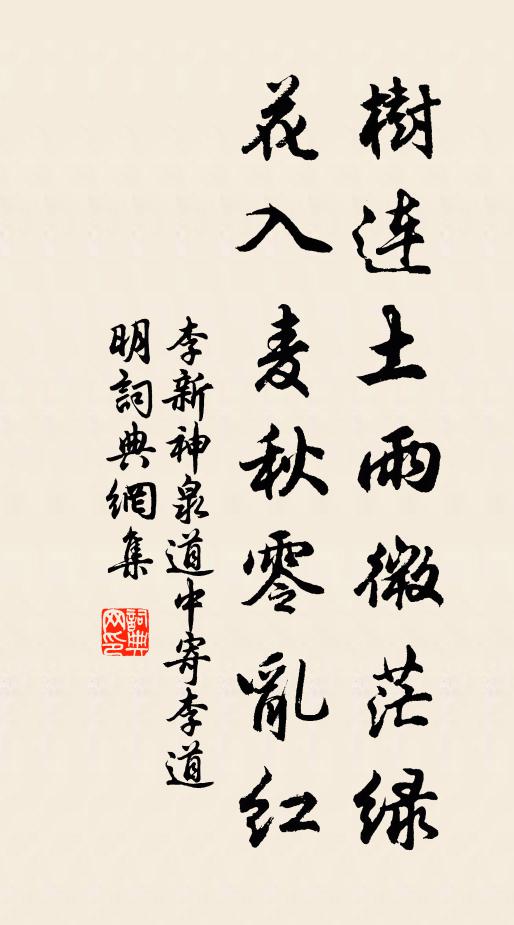 樹連土雨微茫綠
花入麦秋零亂红
李新神泉道中寄李道
明詞典網集
詞典網印